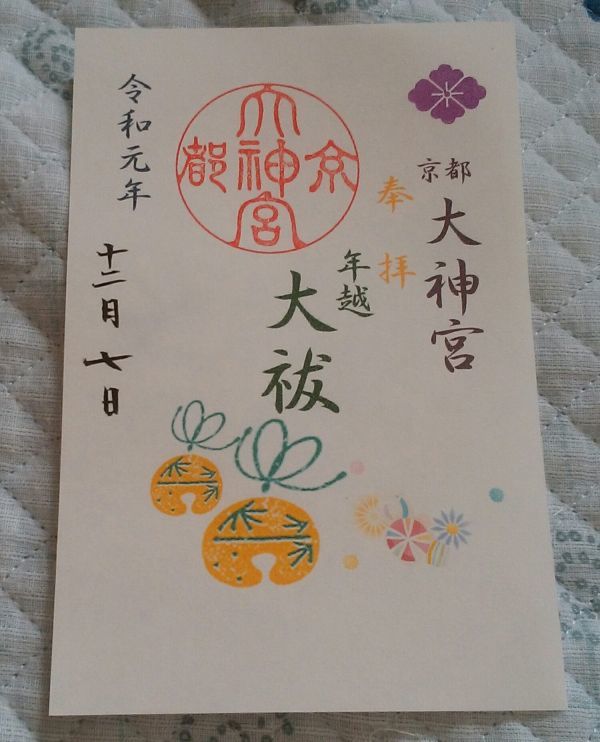 京都
大神宮
奉拝
年越
大祓
大神宮
京都
令和元年
十二月七日